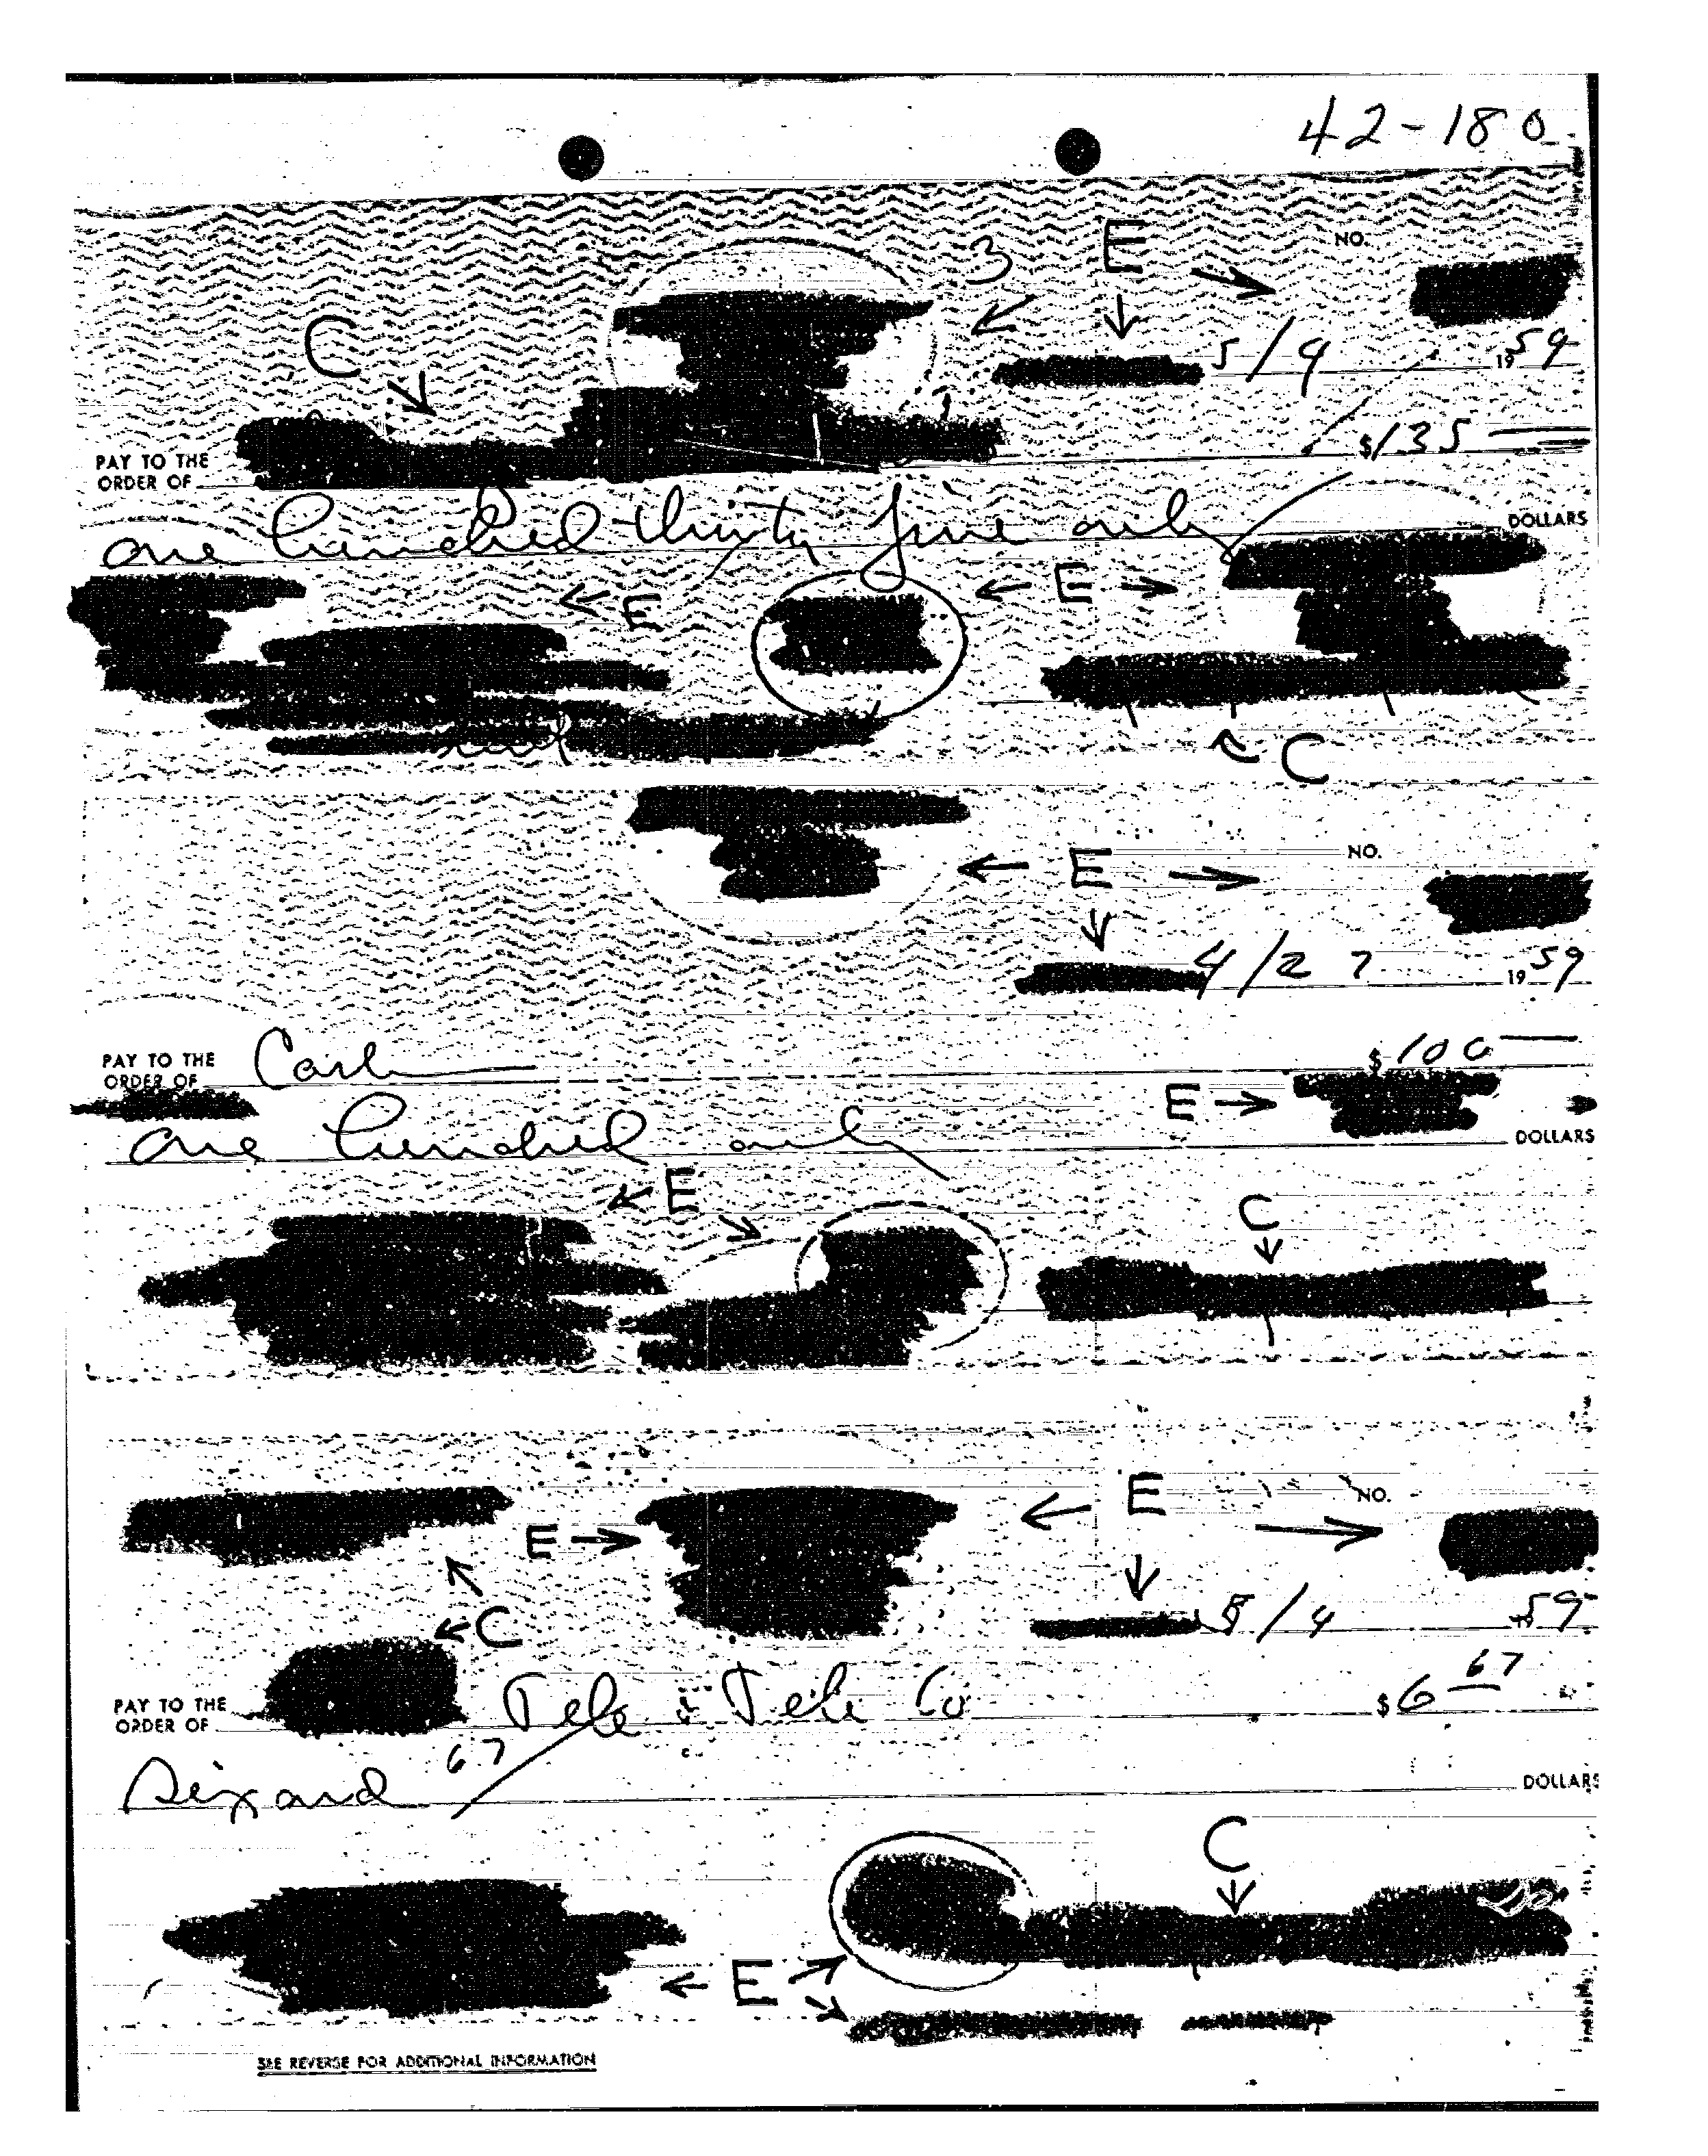 42-180
3 E NO.
C
5/9 1959
PAY TO THE
ORDER OF $135
one hundred thirty five only DOLLARS
E E
C
E NO.
4/27 1959
PAY TO THE
ORDER OF Cash $100
E
one hundred only DOLLARS
E C
E NO.
E
C
/4 59
PAY TO THE
ORDER OF Tele & Tele Co $6 67
Six and 67/ DOLLARS
C
E
SEE REVERSE FOR ADDITIONAL INFORMATION